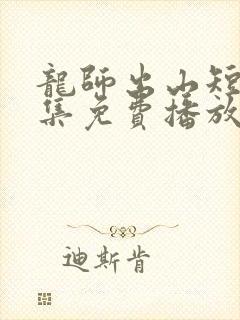 龍師出山短
集免費播放
迪斯肯